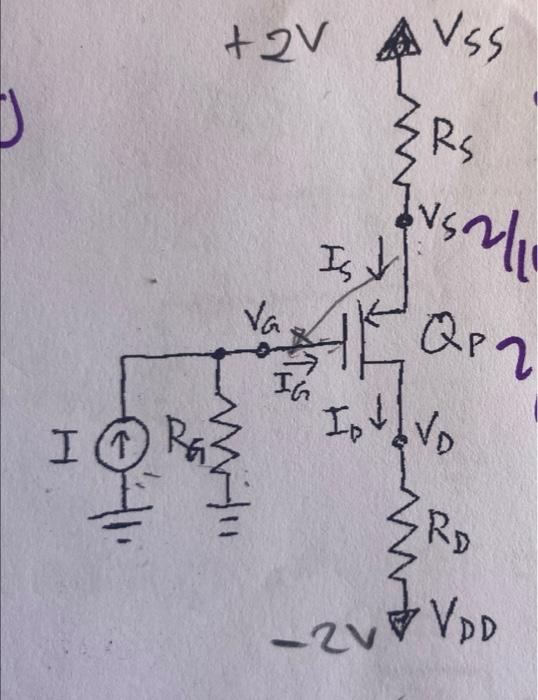 +2V VSS
RS
VS 2/1
IS
VG
QP 2
IG
I RG
ID VD
RD
-2V VDD